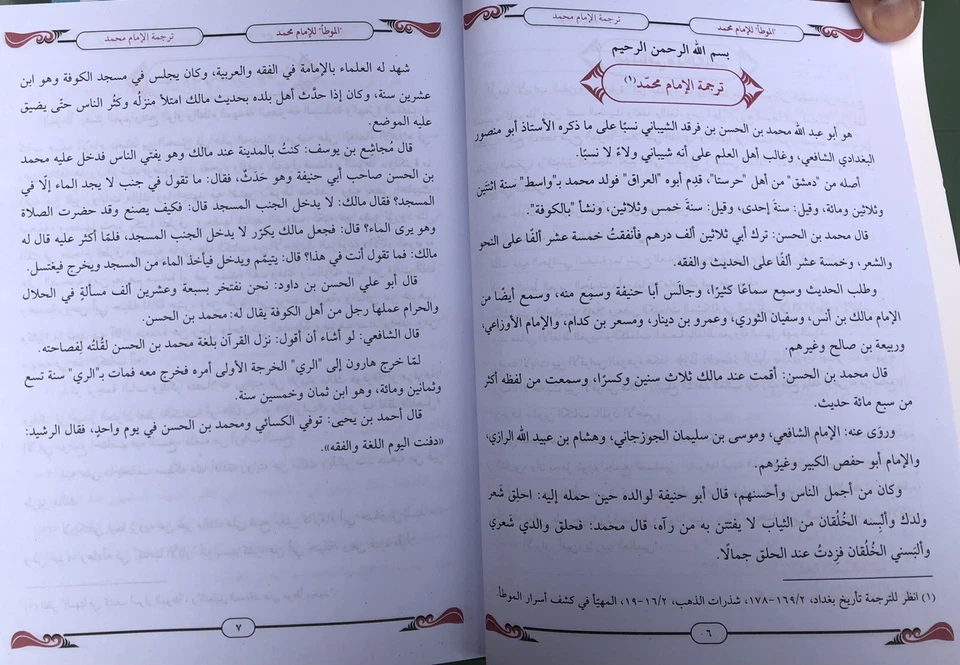 ترجمة الإمام محمد
"الموطأ" للإمام محمد
بسم الله الرحمن الرحيم
ترجمة الإمام محمّد (١)
هو أبو عبد الله محمد بن الحسن بن فرقد الشيباني نسبًا على ما ذكره الأستاذ أبو منصور
البغدادي الشافعي، وغالب أهل العلم على أنه شيباني ولاءً لا نسبًا.
أصله من "دمشق" من أهل "حرستا"، قدِم أبوه "العراق" فولد محمد بـ"واسط" سنة اثنتين
وثلاثين ومائة، وقيل: سنةَ إحدى، وقيل: سنةَ خمس وثلاثين، ونشأ "بالكوفة".
قال محمد بن الحسن: ترك أبي ثلاثين ألف درهم فأنفقتُ خمسة عشر ألفًا على النحو
والشعر، وخمسة عشر ألفًا على الحديث والفقه.
وطلب الحديث وسمِع سماعًا كثيرًا، وجالَس أبا حنيفة وسمِع منه، وسمع أيضًا من
الإمام مالك بن أنس، وسفيان الثوري، وعمرو بن دينار، ومسعر بن كدام، والإمام الأوزاعي،
وربيعة بن صالح وغيرهم.
قال محمد بن الحسن: أقمت عند مالك ثلاث سنين وكسرًا، وسمعت من لفظه أكثر
من سبع مائة حديث.
وروَى عنه: الإمام الشافعي، وموسى بن سليمان الجوزجاني، وهشام بن عبيد الله الرازي،
والإمام أبو حفص الكبير وغيرُهم.
وكان من أجمل الناس وأحسنهم، قال أبو حنيفة لوالده حين حمله إليه: احلِق شَعر
ولدك وألبِسه الخُلُقان من الثياب لا يفتتن به من رآه، قال محمد: فحلق والدي شَعري
وألبَسني الخُلُقان فزِدتُ عند الحلق جمالًا.
(١) انظر للترجمة تأريخ بغداد، ١٦٩/٢-١٧٨، شذرات الذهب، ١٦/٢-١٩، المهيّأ في كشف أسرار الموطأ.
٦
"الموطأ" للإمام محمد
ترجمة الإمام محمد
شهد له العلماء بالإمامة في الفقه والعربية، وكان يجلس في مسجد الكوفة وهو ابن
عشرين سنة، وكان إذا حدَّث أهل بلده بحديث مالك امتلأ منزلُه وكثُر الناس حتّى يضيق
عليه الموضع.
قال مُجاشِع بن يوسف: كنتُ بالمدينة عند مالك وهو يفتي الناس فدخل عليه محمد
بن الحسن صاحب أبي حنيفة وهو حَدَثٌ، فقال: ما تقول في جنب لا يجد الماء إلّا في
المسجد؟ فقال مالك: لا يدخل الجنب المسجد قال: فكيف يصنع وقد حضرت الصلاة
وهو يرى الماء؟ قال: فجعل مالك يكرّر لا يدخل الجنب المسجد، فلمّا أكثر عليه قال له
مالك: فما تقول أنت في هذا؟ قال: يتيمّم ويدخل فيأخذ الماء من المسجد ويخرج فيغتسل.
قال أبو علي الحسن بن داود: نحن نفتخر بسبعة وعشرين ألف مسألةٍ في الحلال
والحرام عملها رجل من أهل الكوفة يقال له: محمد بن الحسن.
قال الشافعي: لو أشاء أن أقول: نزل القرآن بلغة محمد بن الحسن لقُلتُه لِفصاحته.
لمّا خرج هارون إلى "الري" الخرجة الأولى أمره فخرج معه فمات بـ"الري" سنة تسع
وثمانين ومائة، وهو ابن ثمان وخمسين سنة.
قال أحمد بن يحيى: توفي الكسائي ومحمد بن الحسن في يوم واحدٍ، فقال الرشيد:
«دفنت اليوم اللغة والفقه».
٧